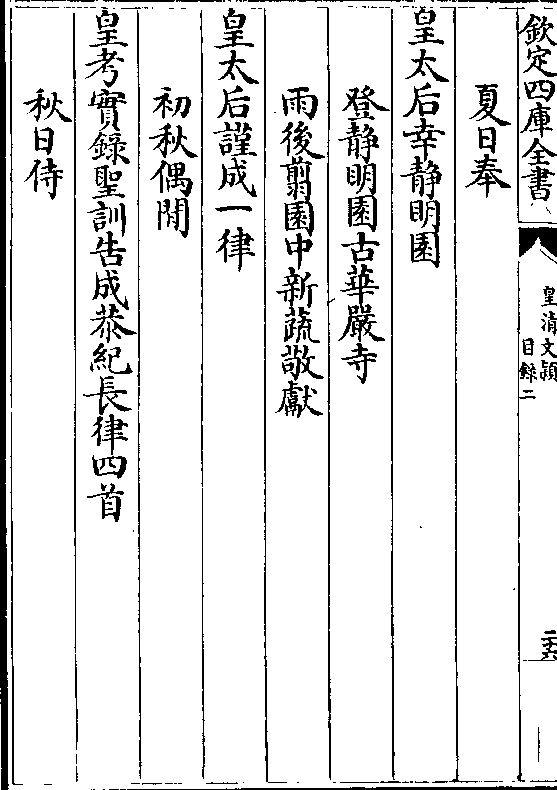 欽定四庫全書
皇清文穎
目錄二
二六
夏日奉
皇太后幸静明園
登静明園古華嚴寺
雨後翦園中新蔬敬獻
皇太后謹成一律
初秋偶閒
皇考實錄聖訓告成恭紀長律四首
秋日侍